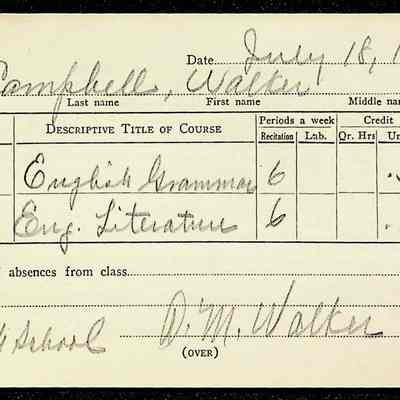 Date July 18, 1
Campbell, Walker
Last name First name Middle nam
DESCRIPTIVE TITLE OF COURSE Periods a week Credit
Recitation Lab. Qr. Hrs Un
English Grammar 6
Eng. Literature 6
absences from class
School D. M. Walker
(OVER)